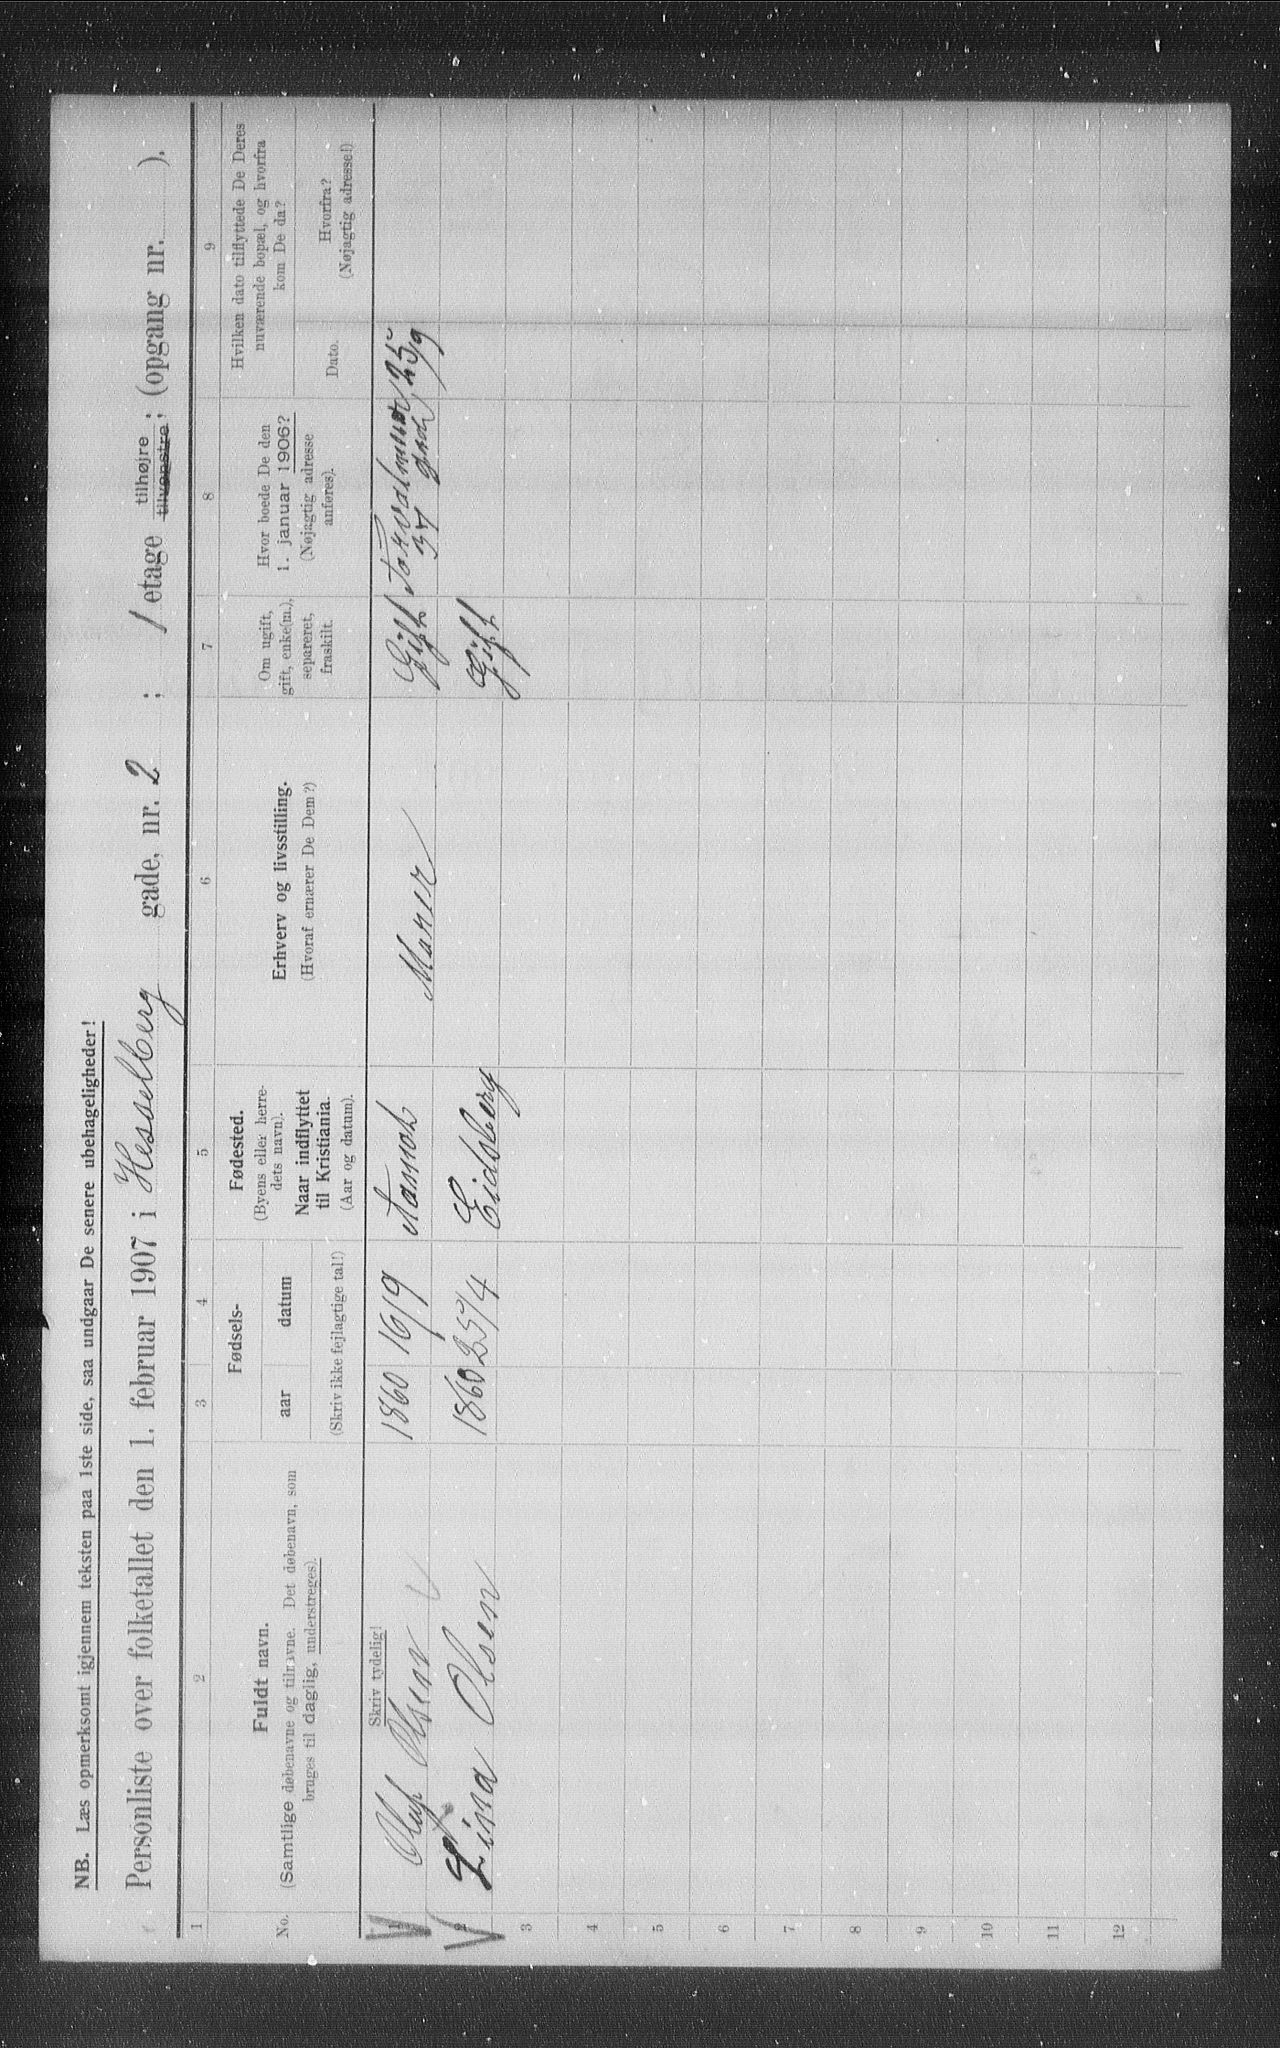 NB. Læs opmerksomt igjennem teksten paa 1ste side, saa undgaar De senere ubehageligheder!
Personliste over folketallet den 1. februar 1907 i Hesselberg gade, nr. 2 ; 1 etage tilhøjre ; (opgang nr. ).
tilvenstre ;
1 2 3 4 5 6 7 8 9
No.
Fuldt navn.
(Samtlige døbenavne og tilnavne. Det døbenavn, som
bruges til daglig, understreges).
Fødsels-
aar datum
(Skriv ikke fejlagtige tal!)
Fødested.
(Byens eller herre-
dets navn).
Naar indflyttet
til Kristiania.
(Aar og datum).
Erhverv og livsstilling.
(Hvoraf ernærer De Dem?)
Om ugift,
gift, enke(m.),
separeret,
fraskilt.
Hvor boede De den
1. januar 1906?
(Nøjagtig adresse
anføres).
Hvilken dato tilflyttede De Deres
nuværende bopæl, og hvorfra
kom De da?
Dato.
Hvorfra?
(Nøjagtig adresse!)
Skriv tydelig!
1 Oluf Olsen 1860 16/9 Murer Gift 25/9
2 Lina Olsen 1860 25/4 Eidsberg Gift
3
4
5
6
7
8
9
10
11
12